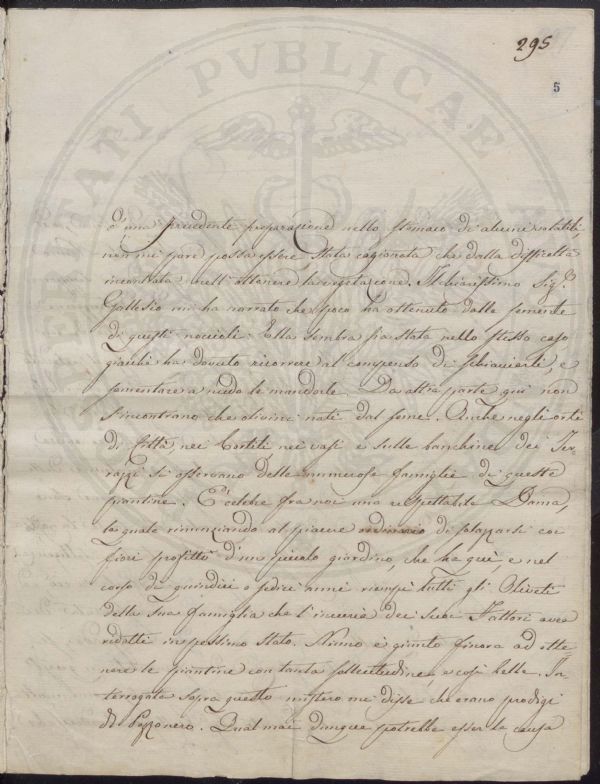 295
5
PROSPERITATI PVBLICAE
o una precedente preparazione nello stomaco di alcuni volatili
non mi pare possa essere stata cagionata che dalla difficoltà
incontrata nell'ottenere la vegetazione. Il chiarissimo Sig.r
Gallesio mi ha narrato che poco ha ottenuto dalle semente
di questi nocciuoli. Ella sembra sia stata nello stesso caso
giacchè ha dovuto ricorrere al compenso di schiacciarli, e
fomentare a nudo le mandorle. Da altra parte qui non
s'incontrano che olivini nati dal seme. Anche negli orti
di Città, nei Cortili nei vasi e sulle banchine dei Ter-
razzi si osservano delle numerose famiglie di queste
piantine. È celebre fra noi una rispettabile Dama,
la quale rinunziando al piacere di solazzarsi coi
fiori profittò d'un piccolo giardino, che ha quì, e nel
corso di quindici o sedici anni riempì tutti gli Oliveti
della sua famiglia che l'incuria dei suoi Fattori avea
ridotti in pessimo stato. Niuno è giunto finora ad otte
nere le piantine con tanta sollecitudine, e così belle. In
terrogata sopra questo mistero mi disse che erano prodigi
di Pozzonero. Qual mai dunque potrebbe esser la causa